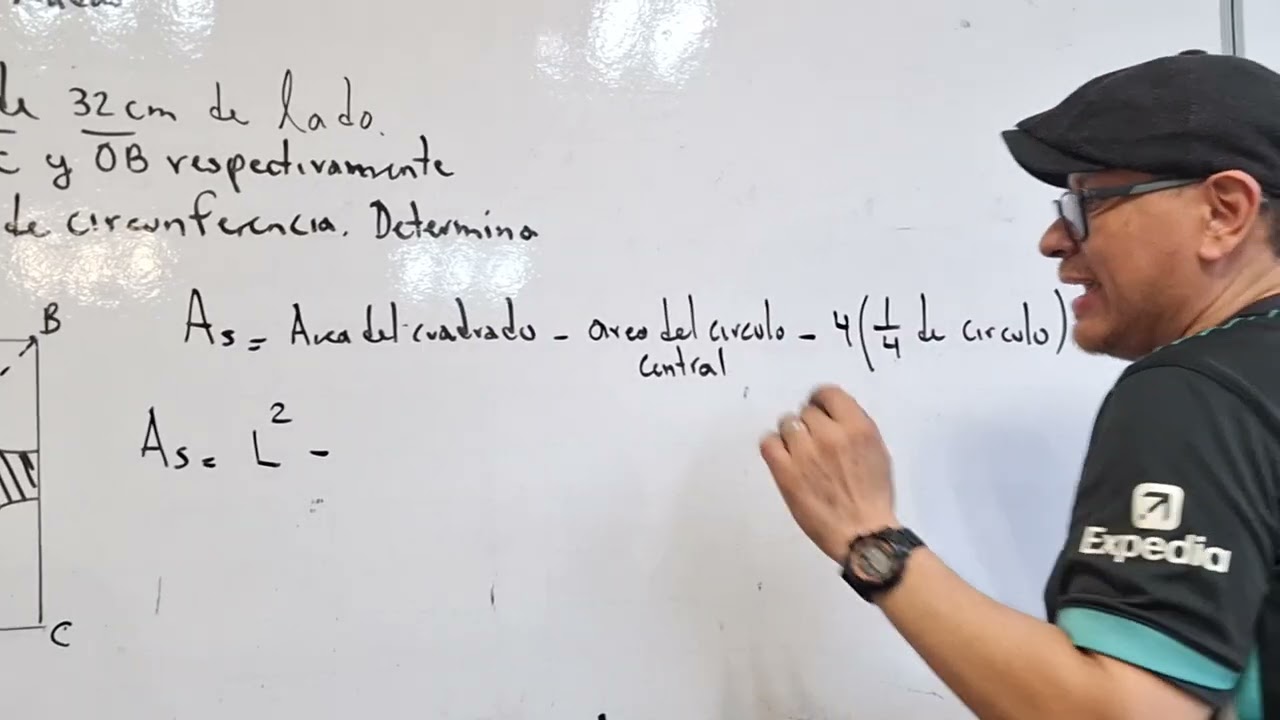 de 32 cm de lado.
y OB respectivamente
de circunferencia. Determina
B
As = Area del cuadrado - area del circulo - 4(1/4 de circulo)
central
As = L² -
C
Expedia